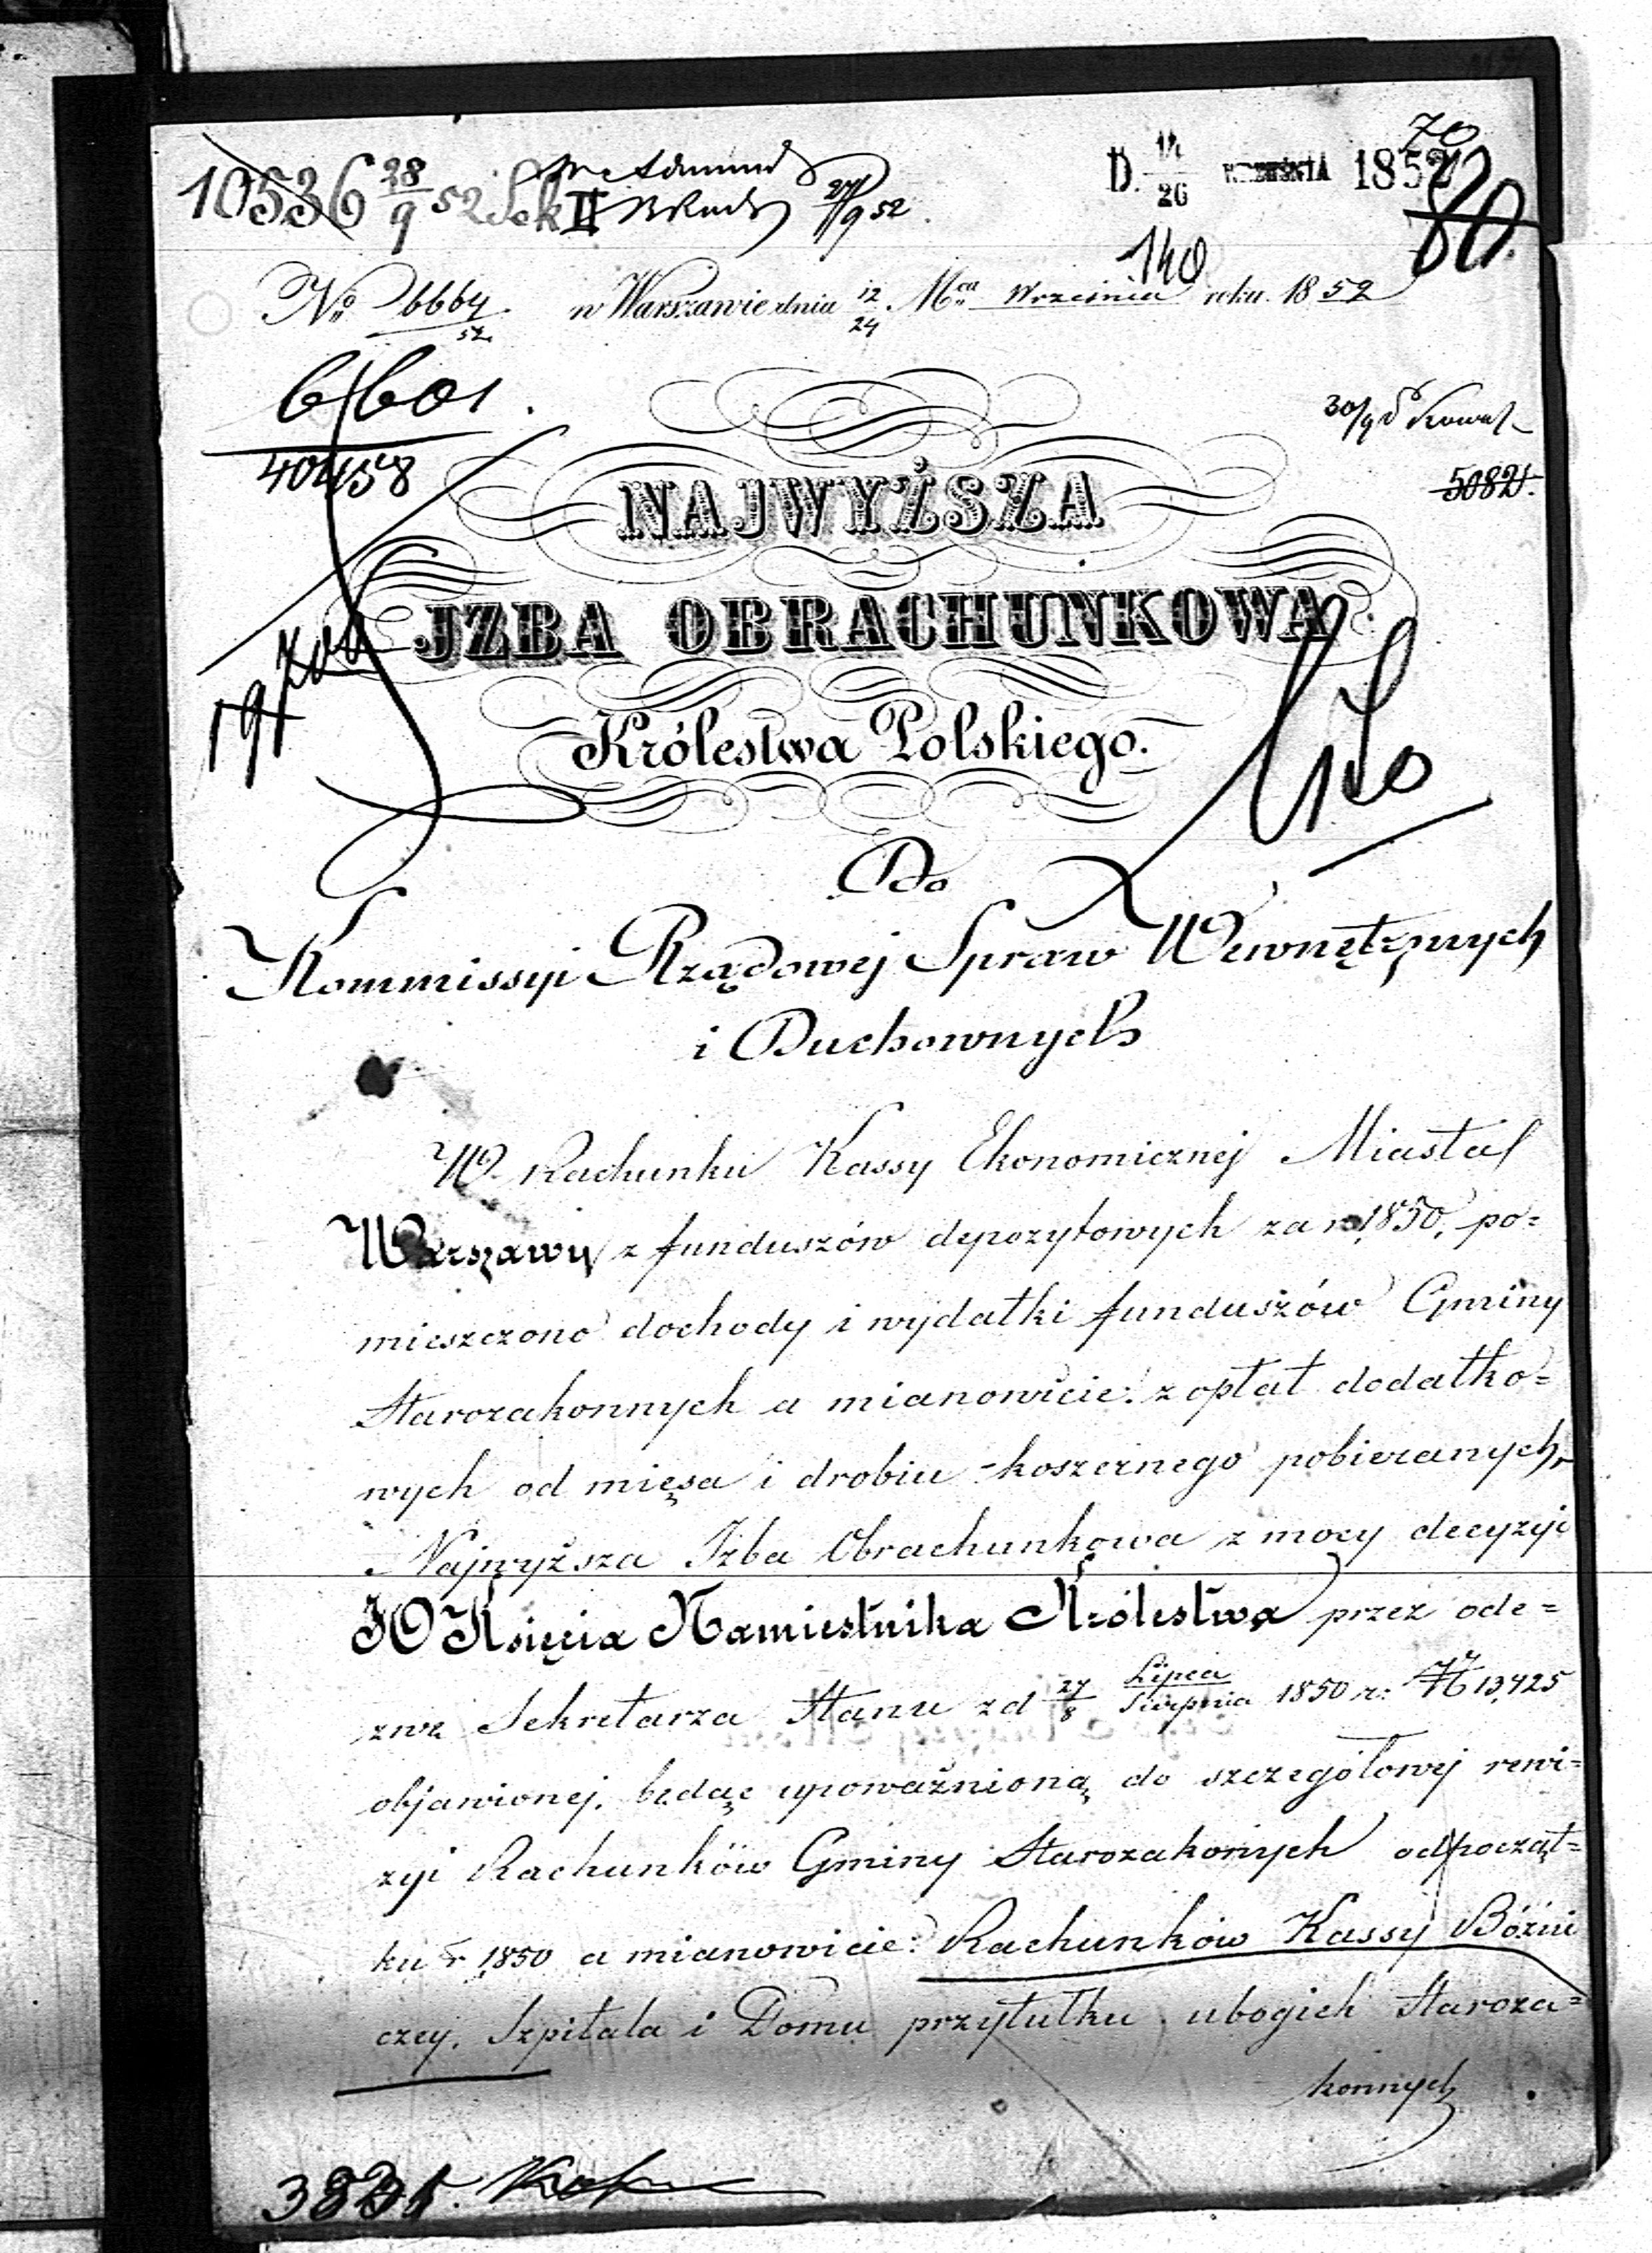 70
D. 14/26 WRZEŚNIA 1852
10536 28/9 52 Sek II 27/9 52.
80.
140
No 6664/52. w Warszawie dnia 12/24 Mca Września roku 1852
6601.
40458
30/9
5082.
NAJWYŻSZA
JZBA OBRACHUNKOWA
Królestwa Polskiego.
19
Do
Kommissyi Rządowej Spraw Wewnętrznych
i Duchownych
W Rachunku Kassy Ekonomicznej Miasta
Warszawy z funduszów depozytowych za r. 1850, po=
mieszczono dochody i wydatki funduszów Gminy
Starozakonnych a mianowicie: z opłat dodatko=
wych od mięsa i drobiu koszernego pobieranych,
Najwyższa Izba Obrachunkowa z mocy decyzyi
JO Księcia Namiestnika Królestwa przez ode=
zwę Sekretarza Stanu z d 27/8 Lipca/Sierpnia 1850 r: No 13,425
objawionej, będąc upoważnioną do szczegółowej rewi=
zyi Rachunków Gminy Starozakonych od począt=
ku r 1850 a mianowicie: Rachunków Kassy Bóżni
czey, Szpitala i Domu przytułku ubogich Staroza=
konnych